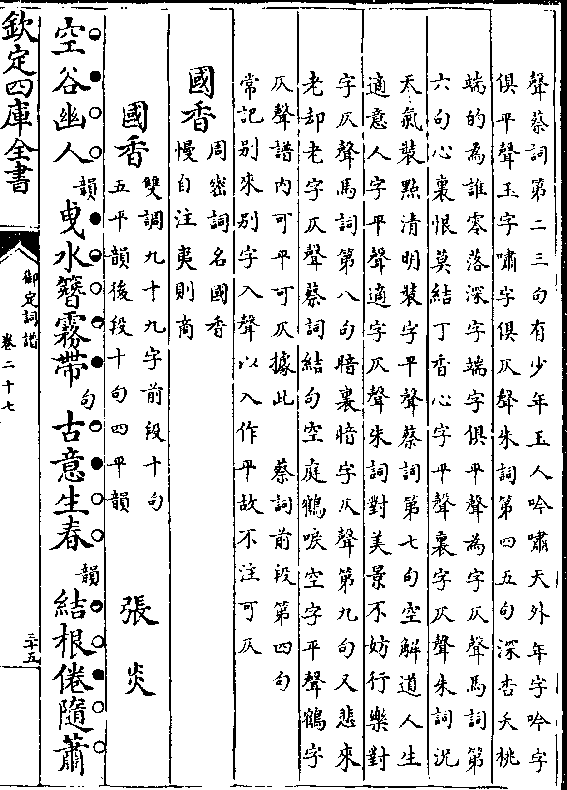 聲蔡詞第二三句有少年玉人吟嘯天外年字吟字
俱平聲玉字嘯字俱仄聲朱詞第四五句深杏夭桃
端的為誰零落深字端字俱平聲為字仄聲馬詞第
六句心裏恨莫結丁香心字平聲裏字仄聲朱詞況
天氣裝點清明裝字平聲蔡詞第七句空解道人生
適意人字平聲適字仄聲朱詞對美景不妨行樂對
字仄聲馬詞第八句暗裏暗字仄聲第九句又悲來
老却老字仄聲蔡詞結句空庭鶴唳空字平聲鶴字
仄聲譜內可平可仄據此 蔡詞前段第四句
常記别來别字入聲以入作平故不注可仄
國香
周密詞名國香
慢自注夷則商
國香
雙調九十九字前段十句
五平韻後段十句四平韻
張炎
空谷幽人韻曵水簪霧帶句古意生春韻結根倦隨蕭
欽定四庫全書
御定詞譜
卷二十七
三十五